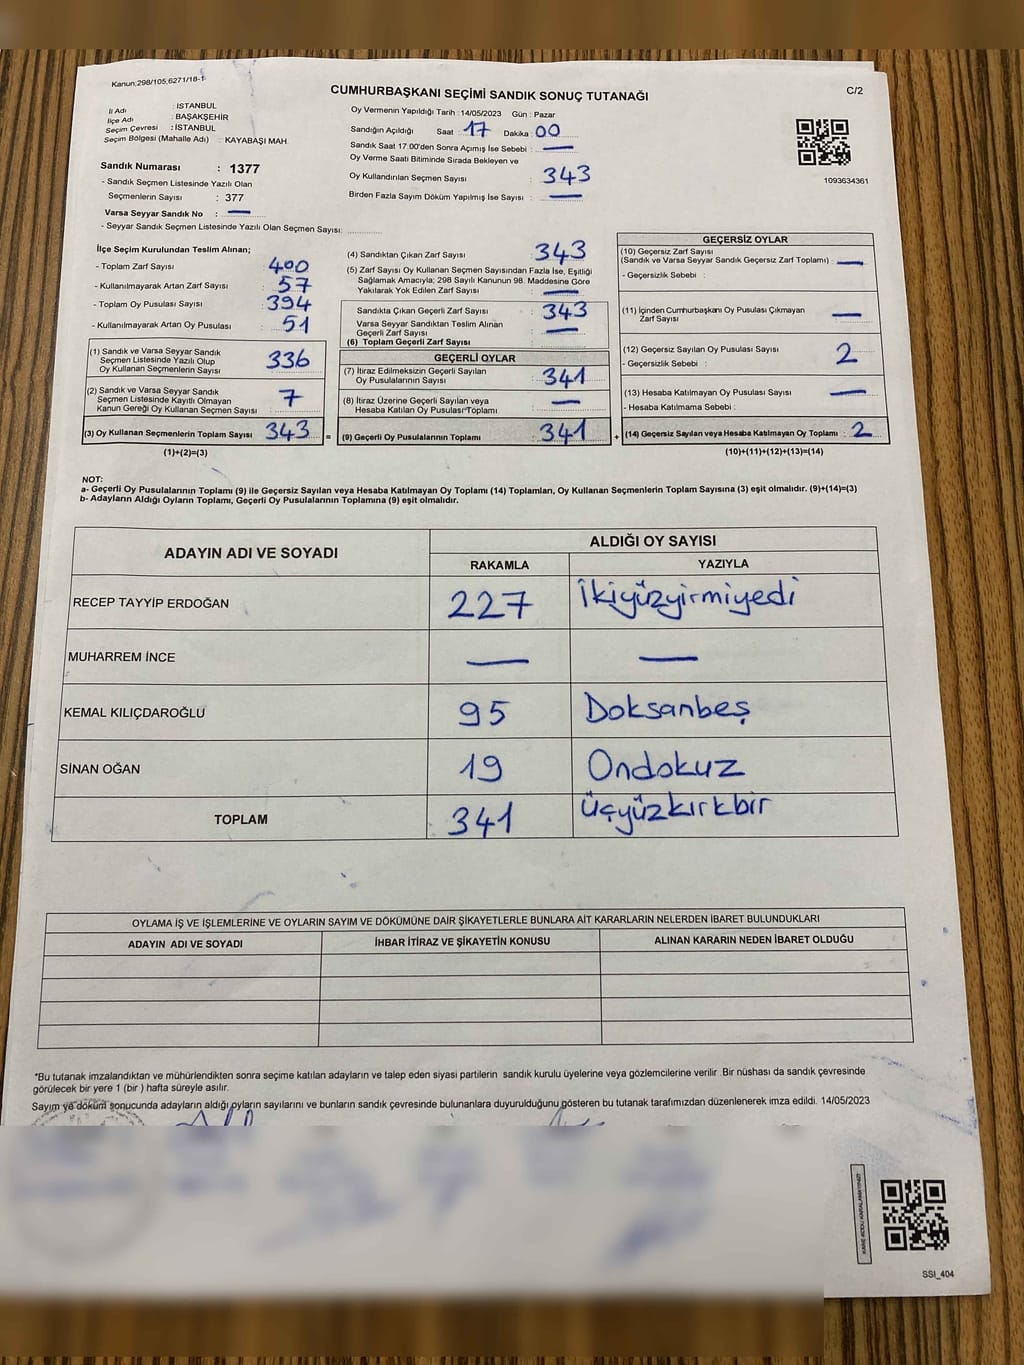 Kanun:298/105,6271/18-1
CUMHURBAŞKANI SEÇİMİ SANDIK SONUÇ TUTANAĞI
C/2
İl Adı : İSTANBUL
İlçe Adı : BAŞAKŞEHİR
Seçim Çevresi : İSTANBUL
Seçim Bölgesi (Mahalle Adı) : KAYABAŞI MAH
Sandık Numarası : 1377
- Sandık Seçmen Listesinde Yazılı Olan
Seçmenlerin Sayısı : 377
Varsa Seyyar Sandık No : —
- Seyyar Sandık Seçmen Listesinde Yazılı Olan Seçmen Sayısı: ............
Oy Vermenin Yapıldığı Tarih :14/05/2023 Gün : Pazar
Sandığın Açıldığı Saat : 17 Dakika : 00
Sandık Saat 17.00'den Sonra Açımış İse Sebebi : —
Oy Verme Saati Bitiminde Sırada Bekleyen ve
Oy Kullandırılan Seçmen Sayısı : 343
Birden Fazla Sayım Döküm Yapılmış İse Sayısı : —
1093634361
İlçe Seçim Kurulundan Teslim Alınan;
- Toplam Zarf Sayısı : 400
- Kullanılmayarak Artan Zarf Sayısı : 57
- Toplam Oy Pusulası Sayısı : 394
- Kullanılmayarak Artan Oy Pusulası : 51
(1) Sandık ve Varsa Seyyar Sandık
Seçmen Listesinde Yazılı Olup
Oy Kullanan Seçmenlerin Sayısı : 336
(2) Sandık ve Varsa Seyyar Sandık
Seçmen Listesinde Kayıtlı Olmayan
Kanun Gereği Oy Kullanan Seçmen Sayısı : 7
(3) Oy Kullanan Seçmenlerin Toplam Sayısı : 343 =
(1)+(2)=(3)
(4) Sandıktan Çıkan Zarf Sayısı : 343
(5) Zarf Sayısı Oy Kullanan Seçmen Sayısından Fazla İse, Eşitliği
Sağlamak Amacıyla; 298 Sayılı Kanunun 98. Maddesine Göre
Yakılarak Yok Edilen Zarf Sayısı : —
Sandıkta Çıkan Geçerli Zarf Sayısı : 343
Varsa Seyyar Sandıktan Teslim Alınan
Geçerli Zarf Sayısı : —
(6) Toplam Geçerli Zarf Sayısı :
GEÇERLİ OYLAR
(7) İtiraz Edilmeksizin Geçerli Sayılan
Oy Pusulalarının Sayısı : 341
(8) İtiraz Üzerine Geçerli Sayılan veya
Hesaba Katılan Oy Pusulası Toplamı : —
(9) Geçerli Oy Pusulalarının Toplamı : 341 +
GEÇERSİZ OYLAR
(10) Geçersiz Zarf Sayısı
(Sandık ve Varsa Seyyar Sandık Geçersiz Zarf Toplamı) : —
- Geçersizlik Sebebi :
(11) İçinden Cumhurbaşkanı Oy Pusulası Çıkmayan
Zarf Sayısı : —
(12) Geçersiz Sayılan Oy Pusulası Sayısı : 2
- Geçersizlik Sebebi :
(13) Hesaba Katılmayan Oy Pusulası Sayısı : —
- Hesaba Katılmama Sebebi :
(14) Geçersiz Sayılan veya Hesaba Katılmayan Oy Toplamı : 2
(10)+(11)+(12)+(13)=(14)
NOT:
a- Geçerli Oy Pusulalarının Toplamı (9) ile Geçersiz Sayılan veya Hesaba Katılmayan Oy Toplamı (14) Toplamları, Oy Kullanan Seçmenlerin Toplam Sayısına (3) eşit olmalıdır. (9)+(14)=(3)
b- Adayların Aldığı Oyların Toplamı, Geçerli Oy Pusulalarının Toplamına (9) eşit olmalıdır.
ADAYIN ADI VE SOYADI
ALDIĞI OY SAYISI
RAKAMLA YAZIYLA
RECEP TAYYİP ERDOĞAN 227 İkiyüzyirmiyedi
MUHARREM İNCE — —
KEMAL KILIÇDAROĞLU 95 Doksanbeş
SİNAN OĞAN 19 Ondokuz
TOPLAM 341 üçyüzkırkbir
OYLAMA İŞ VE İŞLEMLERİNE VE OYLARIN SAYIM VE DÖKÜMÜNE DAİR ŞİKAYETLERLE BUNLARA AİT KARARLARIN NELERDEN İBARET BULUNDUKLARI
ADAYIN ADI VE SOYADI İHBAR İTİRAZ VE ŞİKAYETİN KONUSU ALINAN KARARIN NEDEN İBARET OLDUĞU
*Bu tutanak imzalandıktan ve mühürlendikten sonra seçime katılan adayların ve talep eden siyasi partilerin sandık kurulu üyelerine veya gözlemcilerine verilir .Bir nüshası da sandık çevresinde
görülecek bir yere 1 (bir ) hafta süreyle asılır.
Sayım ve döküm sonucunda adayların aldığı oyların sayılarını ve bunların sandık çevresinde bulunanlara duyurulduğunu gösteren bu tutanak tarafımızdan düzenlenerek imza edildi. 14/05/2023
KARE KODU KARALAMAYINIZ!
SSI_404